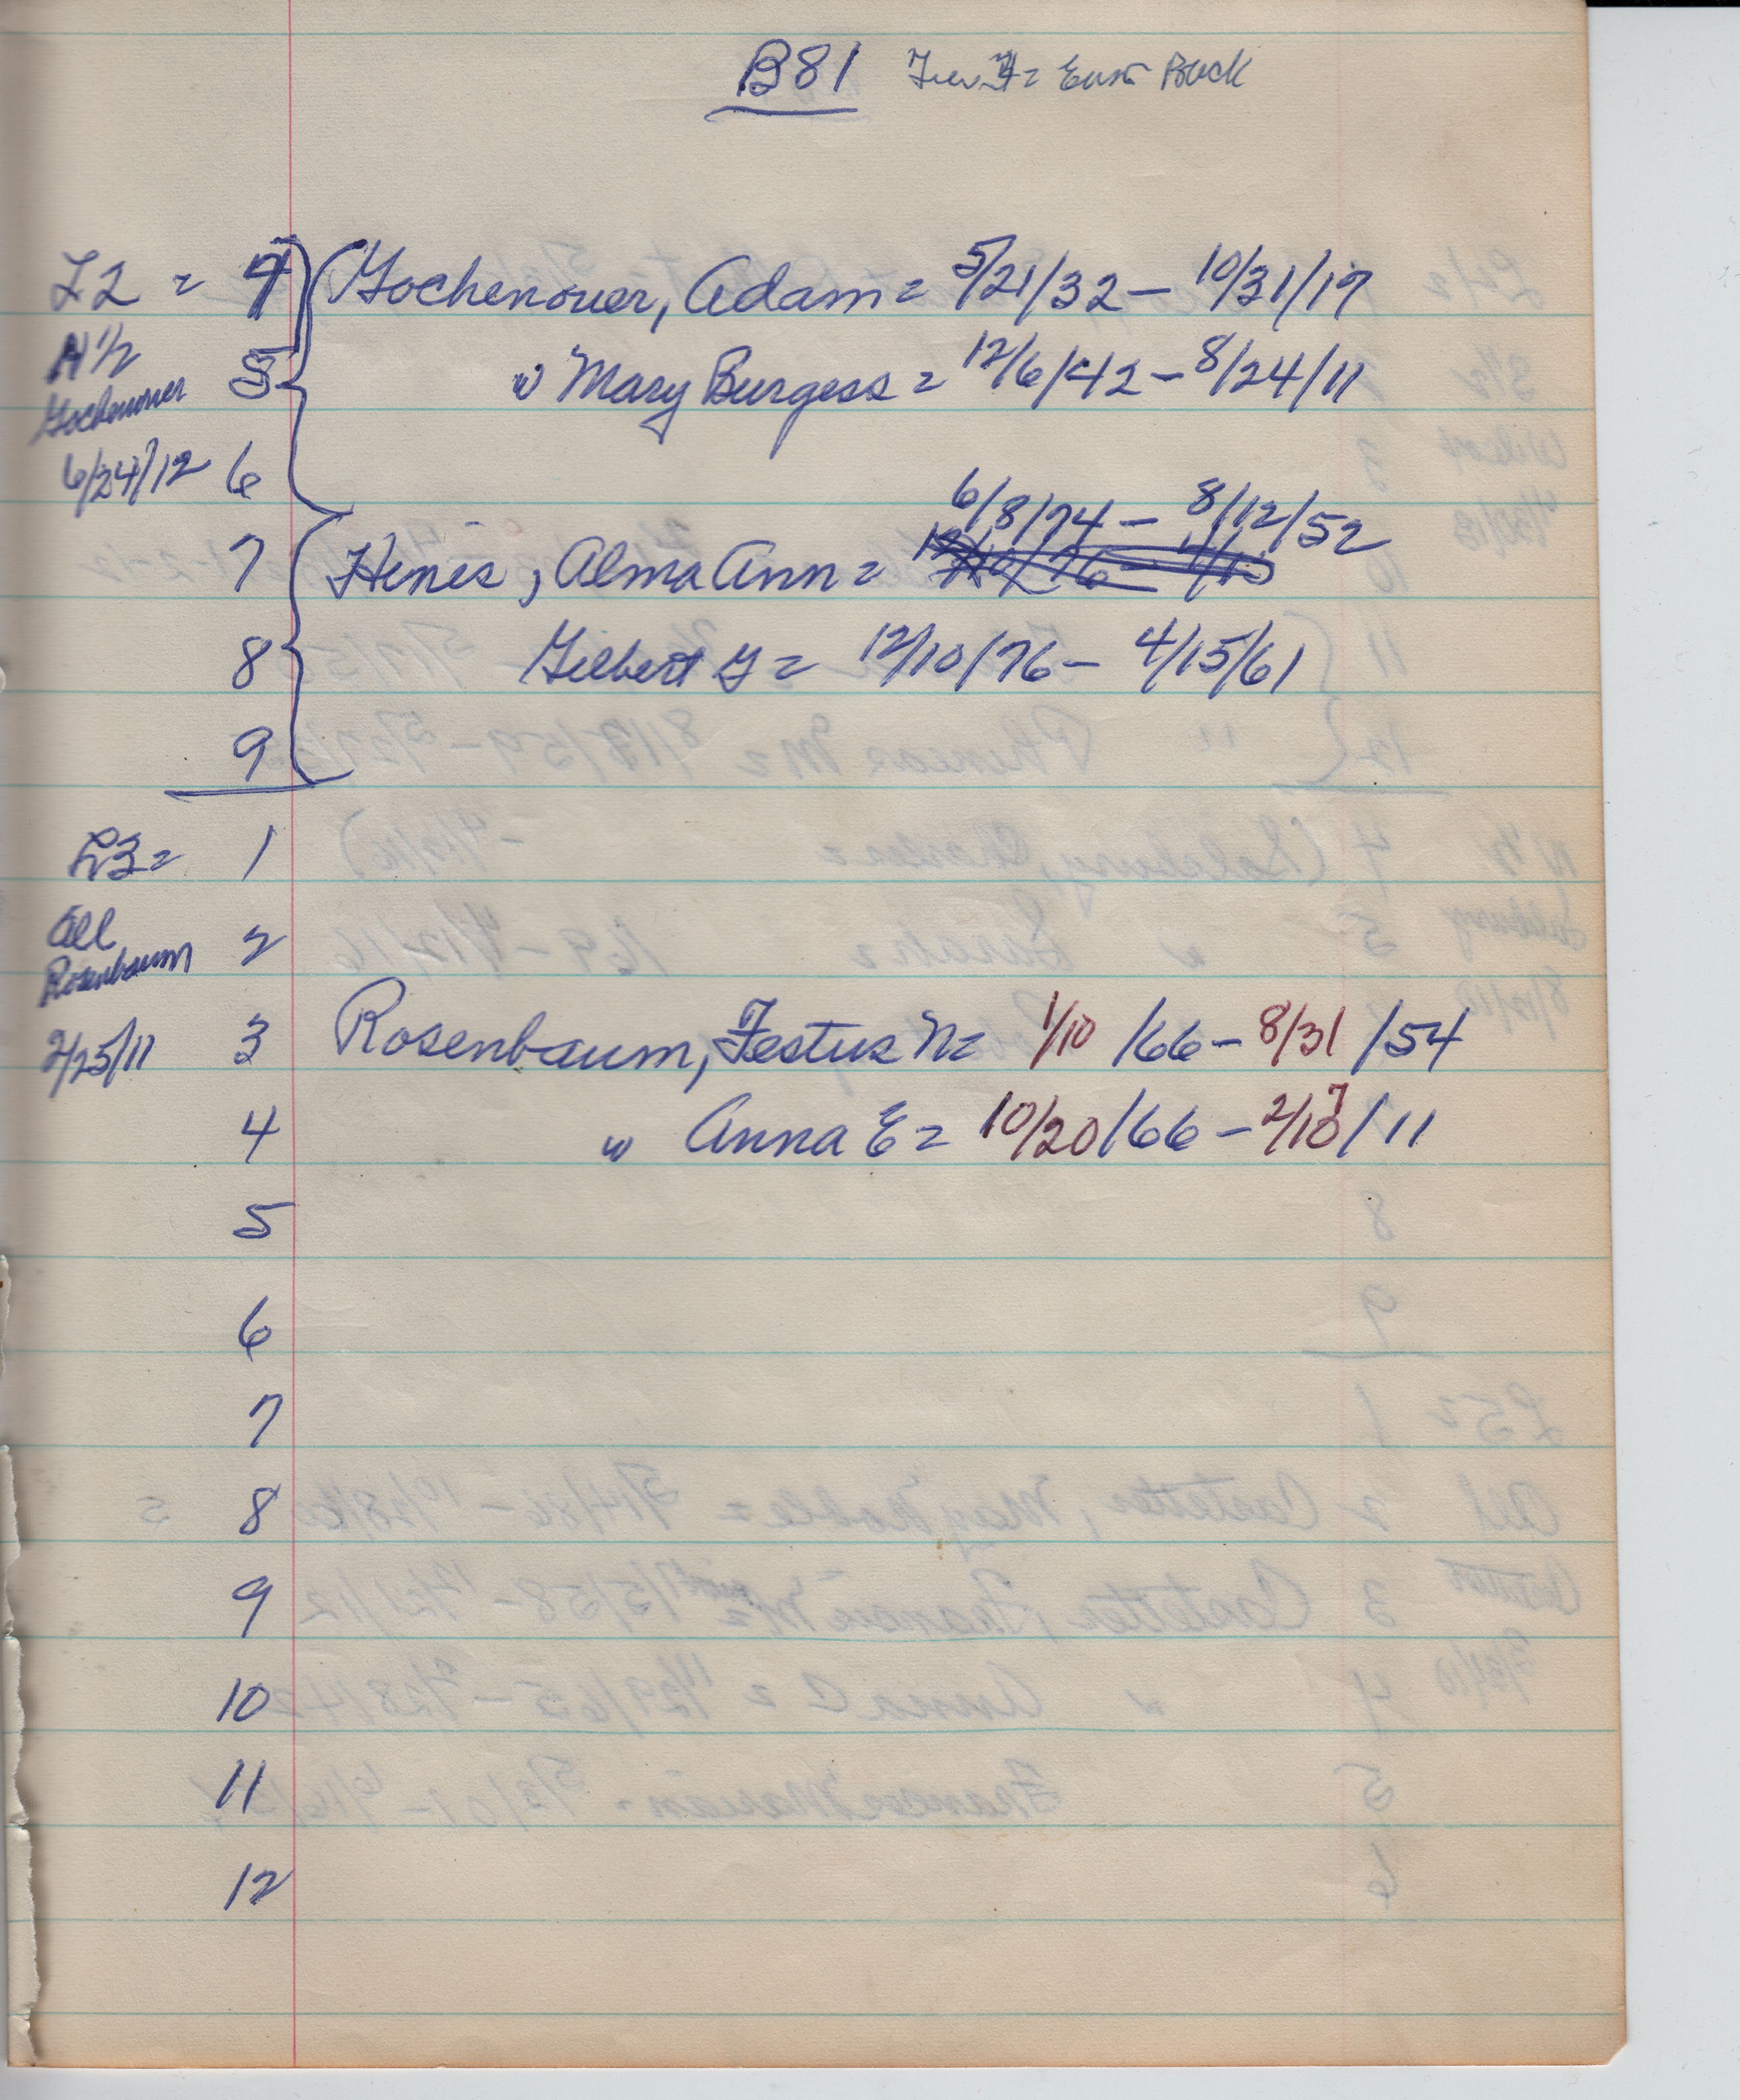 B81 Tier 4 = East Back
L2 = 4 Gochenouer, Adam = 5/21/32 – 10/31/17
N 1/2 5 " Mary Burgess = 12/6/42 – 8/24/11
Gochenouer
6/24/12 6
6/8/74 – 8/12/52
7 Henes, Alma Ann =
8 Gilbert G = 12/10/76 – 4/15/61
9
L3 = 1
All 2
Rosenbaum
2/25/11 3 Rosenbaum, Festus N = 1/10/66 – 8/31/54
4 " Anna E = 10/20/66 – 2/17/11
5
6
7
8
9
10
11
12